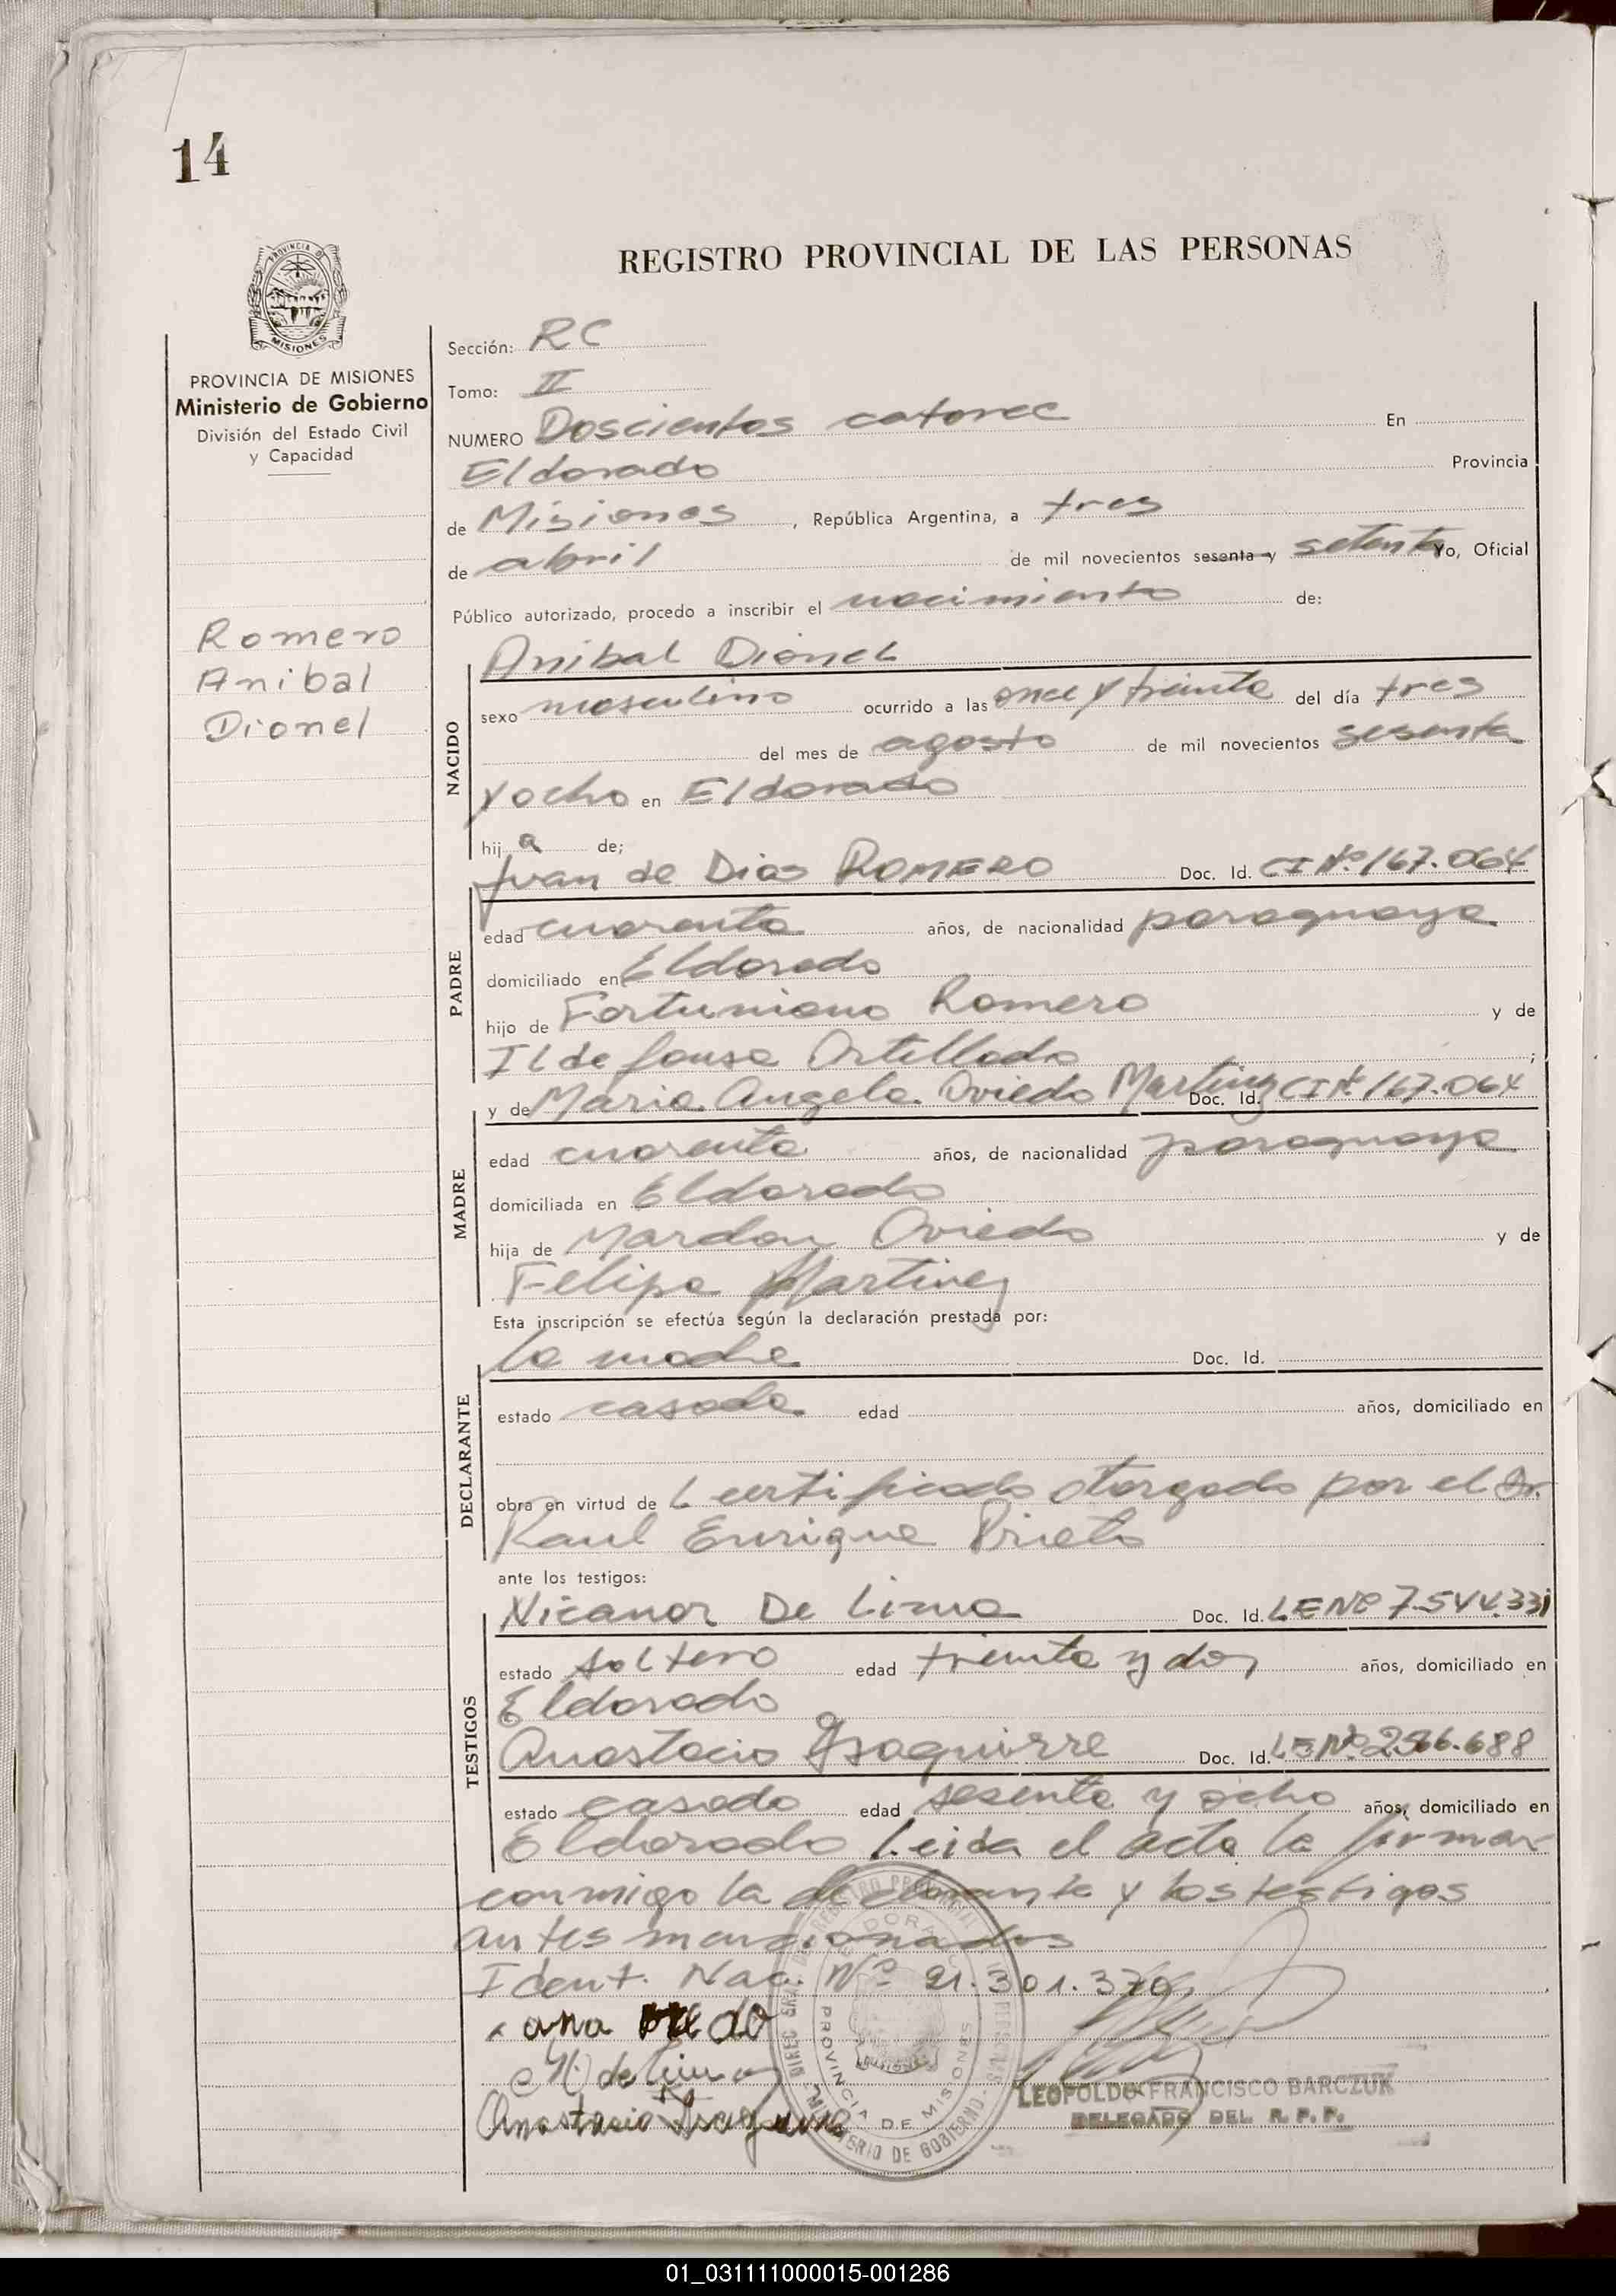 14
REGISTRO PROVINCIAL DE LAS PERSONAS
PROVINCIA DE MISIONES
Ministerio de Gobierno
División del Estado Civil
y Capacidad
Romero
Anibal
Dionel
Sección: RC
Tomo: II
NUMERO Doscientos catorce En
Eldorado Provincia
de Misiones, República Argentina, a tres
de abril de mil novecientos sesenta y setenta Yo, Oficial
Público autorizado, procedo a inscribir el nacimiento de:
Anibal Dionel
NACIDO
sexo masculino ocurrido a las once y treinta del día tres
del mes de agosto de mil novecientos sesenta
y ocho en Eldorado
hij a de;
Juan de Dios ROMERO Doc. Id. CI Nº 167.064
PADRE
edad cuarenta años, de nacionalidad paraguaya
domiciliado en Eldorado
hijo de Fortuniano Romero y de
Ildefonsa Ortellado ;
y de Maria Angela Oviedo Martinez Doc. Id. CI Nº 167.064
MADRE
edad cuarenta años, de nacionalidad paraguaya
domiciliada en Eldorado
hija de Mardon Oviedo y de
Felipa Martinez
Esta inscripción se efectúa según la declaración prestada por:
la madre Doc. Id.
DECLARANTE
estado casada edad años, domiciliado en
obra en virtud de l certificado otorgado por el Dr.
Raul Enrique Prieto
ante los testigos:
Nicanor De Lima Doc. Id. LE Nº 7.544.331
TESTIGOS
estado soltero edad treinta y dos años, domiciliado en
Eldorado
Anastacio Ysaguirre Doc. Id. LE Nº 2.566.688
estado casado edad sesenta y ocho años, domiciliado en
Eldorado Leida el acta la firman
conmigo la declarante y los testigos
antes mencionados
Ident. Nac. Nº 21.301.370.
ana
N de Lima
Anastacio
PROVINCIA DE MISIONES
MINISTERIO DE GOBIERNO
LEOPOLDO FRANCISCO BARCZUK
DELEGADO DEL R.P.P.
01_031111000015-001286